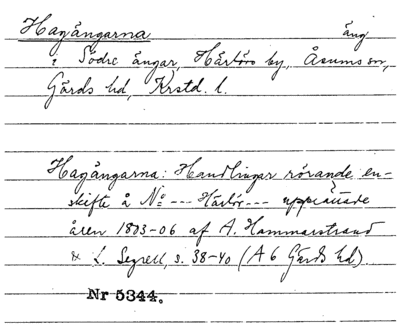 Hagångarna äng
i Södre ångar, Hårlövs by, Åsums sn,
Gärds hd, Krstd. l.
Hagångarna: Handlingar rörande en-
skifte å No --- Hårlöv --- upprättade
åren 1803-06 af A. Hammarstrand
& L. Segrell, s. 38-40 (A 6 Gärds hd).
Nr 5344.